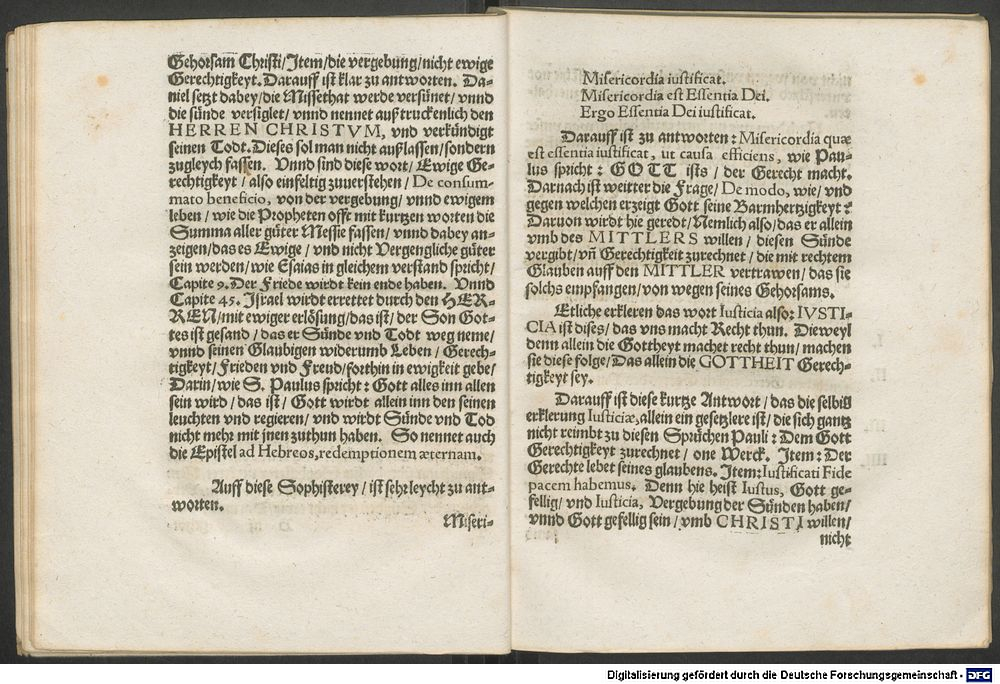 Gehorsam Christi/Item/die vergebung/nicht ewige
Gerechtigkeyt. Darauff ist klar zu antworten. Da-
niel setzt dabey/die Missethat werde versünet/vnnd
die sünde versiglet/vnnd nennet außtruckenlich den
HERREN CHRISTVM, vnd verkündigt
seinen Todt. Dieses sol man nicht außlassen/sondern
zugleych fassen. Vnnd sind diese wort/Ewige Ge-
rechtigkeyt/also einfeltig zuuerstehen/De consum-
mato beneficio, von der vergebung/vnnd ewigem
leben/wie die Propheten offt mit kurtzen worten die
Summa aller güter Messie fassen/vnnd dabey an-
zeigen/das es Ewige/vnd nicht Vergengliche güter
sein werden/wie Esaias in gleichem verstand spricht/
Capite 9. Der Friede wirdt kein ende haben. Vnnd
Capite 45. Israel wirdt errettet durch den HER-
REN/mit ewiger erlösung/das ist/der Son Got-
tes ist gesand/das er Sünde vnd Todt weg neme/
vnnd seinen Glaubigen widerumb Leben/Gerech-
tigkeyt/Frieden vnd Freud/forthin in ewigkeit gebe/
Darin/wie S. Paulus spricht: Gott alles inn allen
sein wird/das ist/Gott wirdt allein inn den seinen
leuchten vnd regieren/vnd wirdt Sünde vnd Tod
nicht mehr mit jnen zuthun haben. So nennet auch
die Epistel ad Hebreos, redemptionem æternam.
Auff diese Sophisterey/ist sehr leycht zu ant-
worten.
Miseri-
Misericordia iustificat.
Misericordia est Essentia Dei.
Ergo Essentia Dei iustificat.
Darauff ist zu antworten: Misericordia quæ
est essentia iustificat, ut causa efficiens, wie Pau-
lus spricht: GOTT ists/der Gerecht macht.
Darnach ist weitter die Frage/De modo, wie/vnd
gegen welchen erzeigt Gott seine Barmhertzigkeyt:
Daruon wirdt hie geredt/Nemlich also/das er allein
vmb des MITTLERS willen/diesen Sünde
vergibt/vñ Gerechtigkeit zurechnet/die mit rechtem
Glauben auff den MITTLER vertrawen/das sie
solchs empfangen/von wegen seines Gehorsams.
Etliche erkleren das wort Iusticia also: IVSTI-
CIA ist dises/das vns macht Recht thun. Dieweyl
denn allein die Gottheyt machet recht thun/machen
sie diese folge/Das allein die GOTTHEIT Gerech-
tigkeyt sey.
Darauff ist diese kurtze Antwort/das die selbig
erklerung Iusticiæ, allein ein gesetzlere ist/die sich gantz
nicht reimbt zu diesen Sprüchen Pauli: Dem Gott
Gerechtigkeyt zurechnet/one Werck. Item: Der
Gerechte lebet seines glaubens. Item: Iustificati Fide
pacem habemus. Denn hie heist Iustus, Gott ge-
fellig/vnd Iusticia, Vergebung der Sünden haben/
vnnd Gott gefellig sein/vmb CHRISTI willen/
nicht
Digitalisierung gefördert durch die Deutsche Forschungsgemeinschaft - DFG